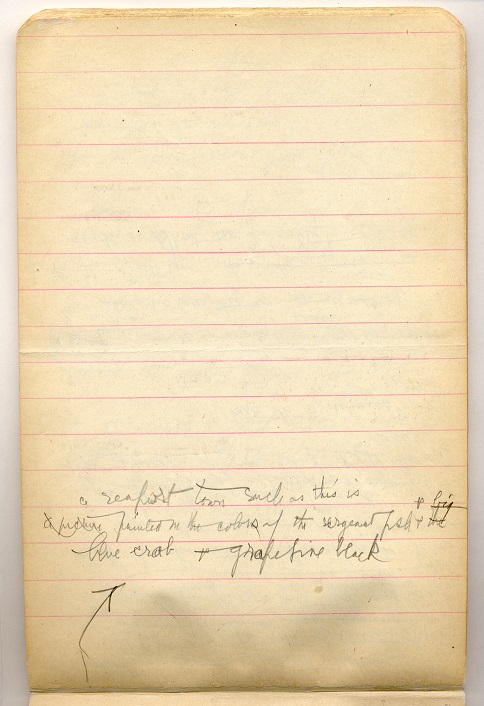 a seaport town such as this is
a picture painted in the colors of the sergeant fish & the big
blue crab & grapevine black